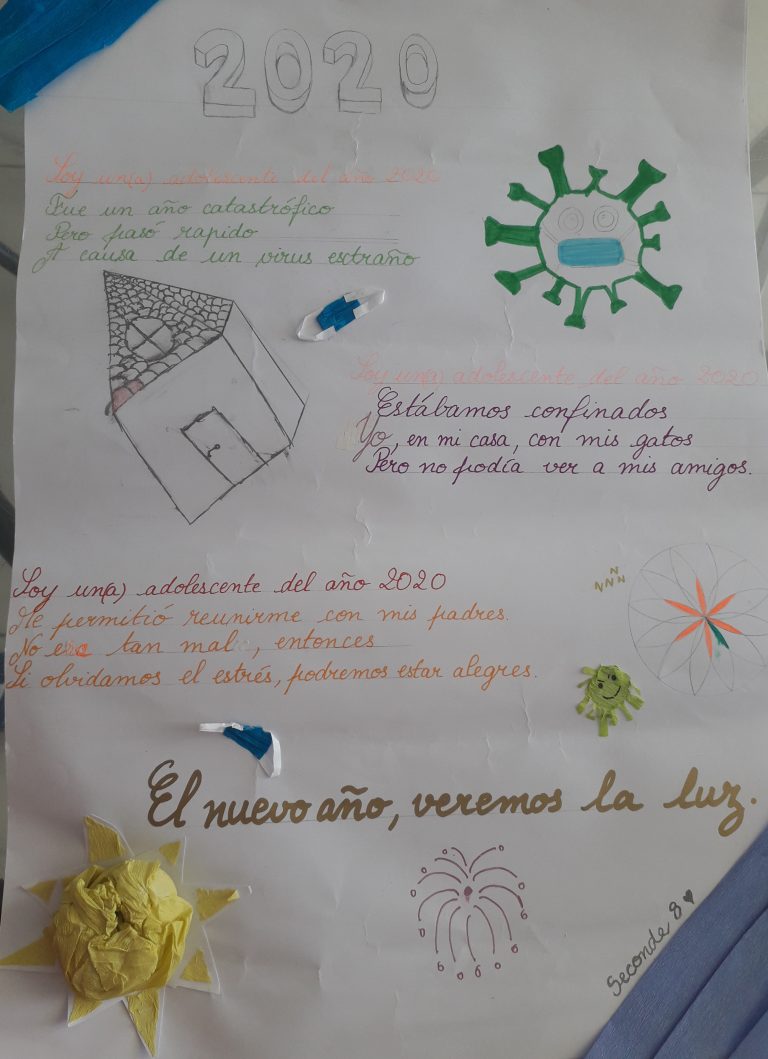 2020
Soy un(a) adolescente del año 2020
Fue un año catastrófico
Pero pasó rapido
A causa de un virus extraño
Soy un(a) adolescente del año 2020
Estábamos confinados
Yo, en mi casa, con mis gatos
Pero no podía ver a mis amigos.
Soy un(a) adolescente del año 2020
Me permitió reunirme con mis padres.
No era tan mal, entonces
Si olvidamos el estrés, podremos estar alegres.
El nuevo año, veremos la luz.
Seconde 8 ♥